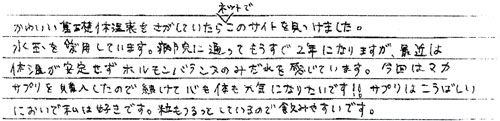 ネットで
かわいい基礎体温表をさがしていたらこのサイトを見つけました。
水玉を愛用しています。病院に通ってもうすぐ2年になりますが、最近は
体温が安定せずホルモンバランスのみだれを感じています。今回はマカ
サプリを購入したので続けて心も体も元気になりたいです!! サプリはこうばしい
においで私は好きです。粒もつるっとしているので飲みやすいです。